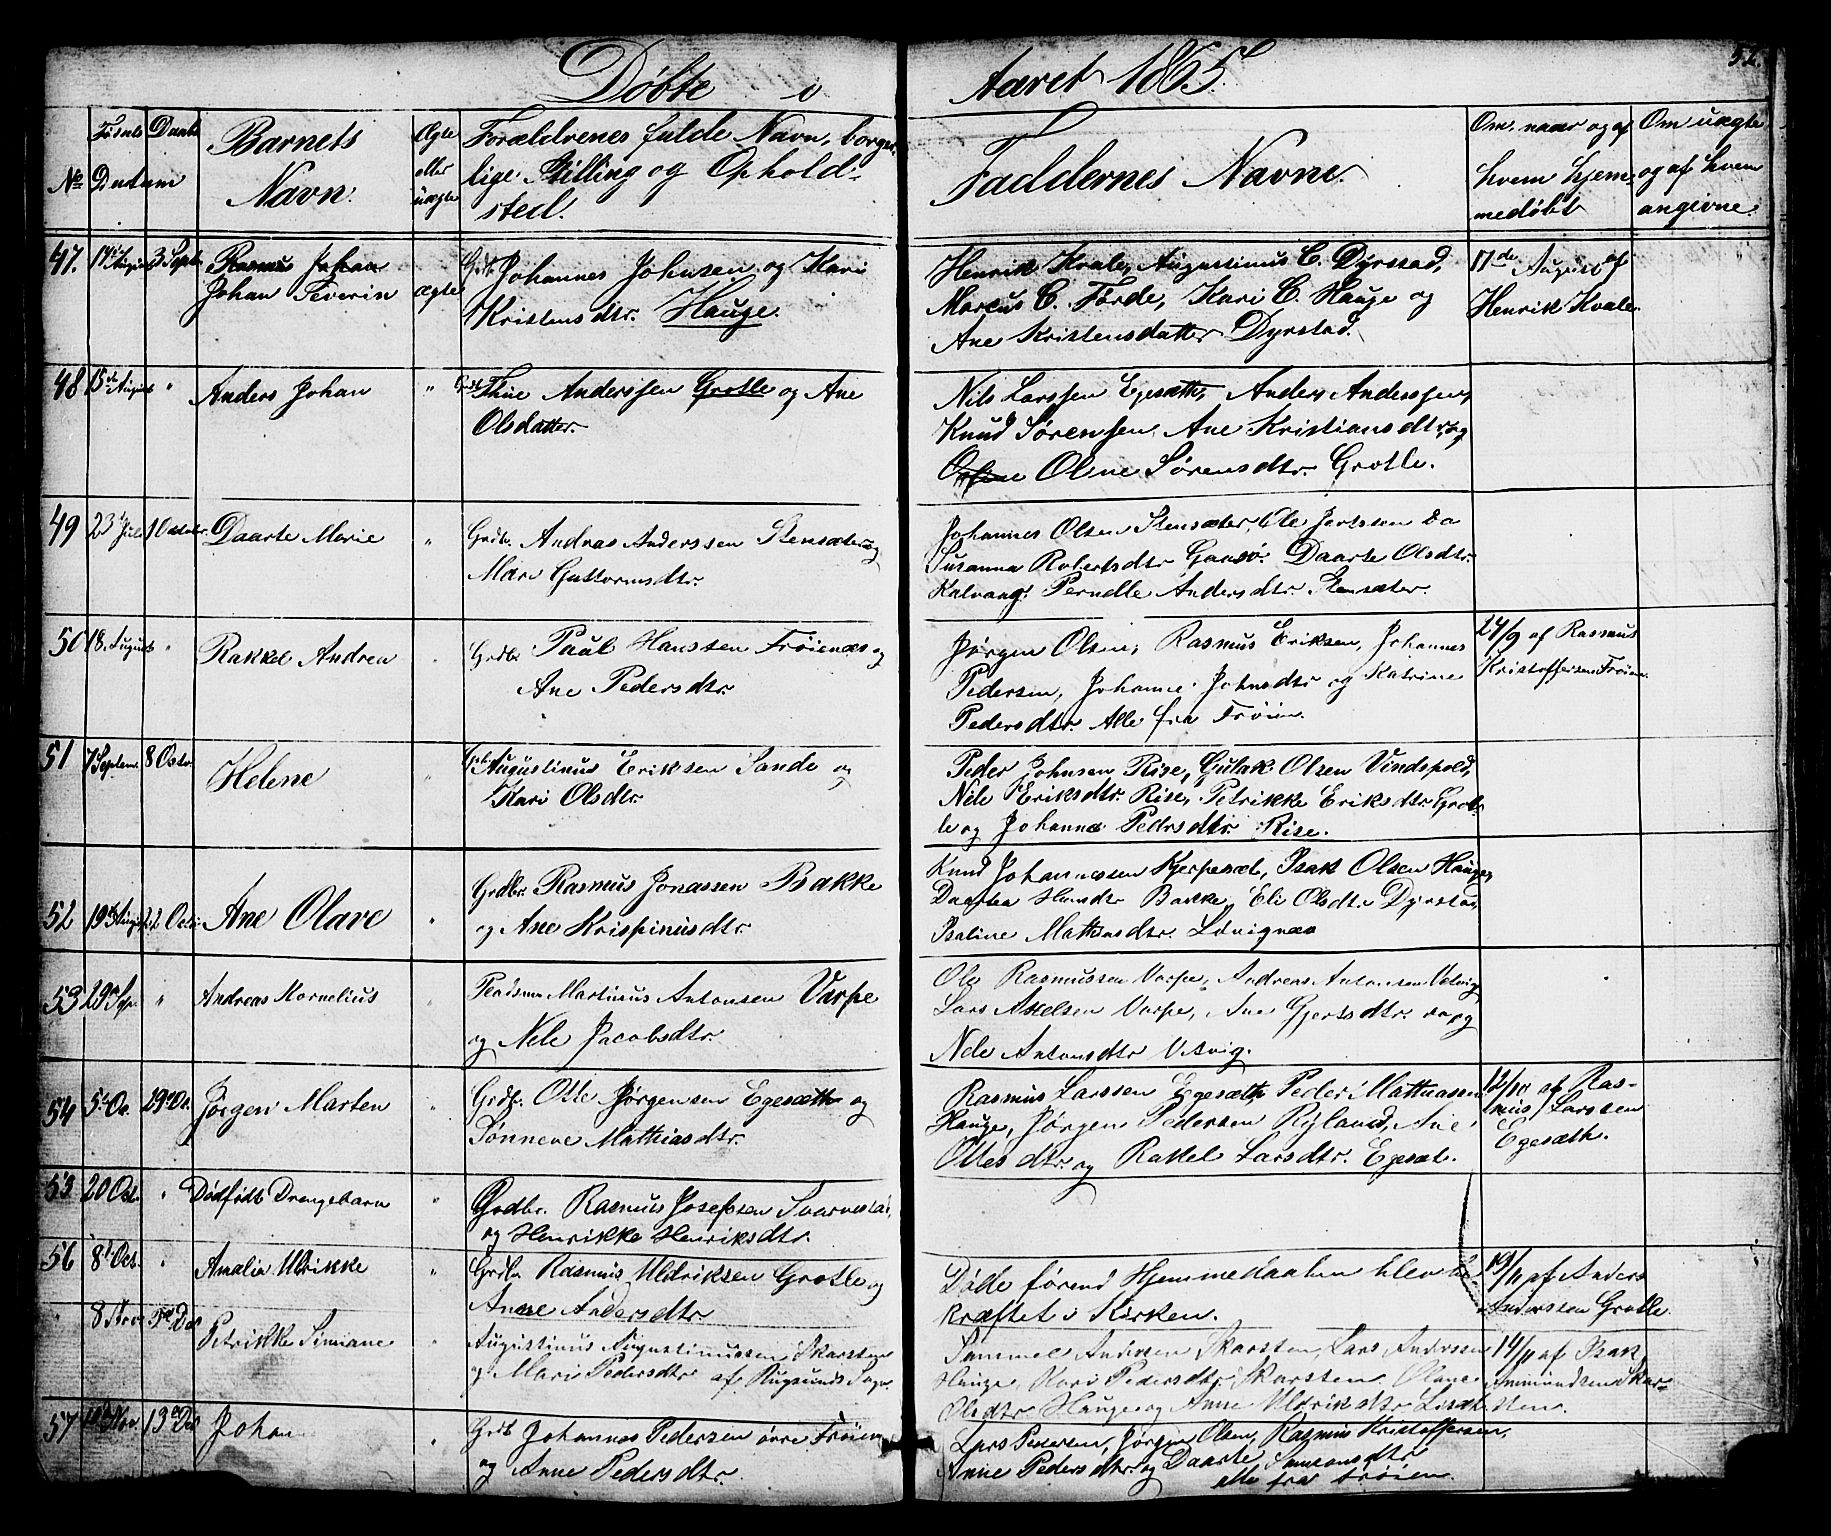 Døbte i Aaret 1865.
52.
No
Føsels Daabs
Datum
Barnets
Navn.
Ægte
eller
uægte
Forældrenes fulde Navn, borger-
lige Stilling og Ophold-
sted.
Faddernes Navne.
Om, naar og af
hvem hjem-
medøbt
Om uægte
og af hvem
angivne.
47. 17de August 3 Sept. Rasmus Johan
Johan Severin
ægte
Grdb. Johannes Johnsen og Kari
Kristensdtr. Hauge.
Henrik Kvale, Augustinus C. Dyrstad,
Marcus C. Førde, Kari C. Hauge og
Ane Kristensdatter Dyrstad.
17de August af
Henrik Kvale
48 15de August " Anders Johan "
Thue Anderssen Grotle og Ane
Olsdatter.
Nils Larssen Egesæth, Anders Anderssen,
Knud Sørenssen, Ane Kristiansdtr. og
Olsne Oline Sørensdtr. Grotle.
49 23 Juli 1 October. Daarte Marie "
Grdb. Andreas Anderssen Stensæter og
Mari Guttormsdtr.
Johannes Olsen Stensæter, Ole Jertssen Do
Susanna Robertsdtr Gaasø. Daarte Olsdtr.
Kalvaag. Pernelle Andersdtr. Stensæter.
50 18. August " Rakkel Andrea "
Grdbr Paul Hanssen Frøienæs og
Ane Pedersdtr.
Jørgen Olsen, Rasmus Eriksen, Johannes
Pedersen, Johanne Johnsdtr og Katrine
Pedersdtr. Alle fra Frøien.
24/9 af Rasmus
Kristoffersen Frøien.
51 7 Septem. 8 Octr. Helene "
Grb. Augustinus Eriksen Sande og
Kari Olsdtr.
Peder Johnsen Rise, Gulak Olsen Vindspold,
Nele Eriksdtr. Rise, Petrikke Eriksdtr Grot-
le og Johanne Pedrsdtr. Rise.
52 19de August 22 Octr. Ane Olave "
Grdbr. Rasmus Jonassen Bakke
og Ane Krispinusdtr.
Knud Johannessen Kjerpesæt, Isak Olsen Hauge,
Daartea Hansdtr Bakke, Eli Olsdtr Dyrstad,
Isaline Mathiasdtr. Løvignæs
53 29de Sep. " Andreas Kornelius "
Martinus Antonsen Varpe
og Nele Jacobsdtr.
Ole Rasmussen Varpe, Andreas Antonsen Vetvig
Lars Axelsen Varpe, Ane Gjertsdtr. do, og
Nele Antonsdtr Vetvig.
54 5te Oc. 29de Oc. Jørgen Marten "
Grdb. Otte Jørgensen Egesæth og
Sønneve Mathiasdtr.
Rasmus Larssen Egesæth, Peder Mathiassen
Hauge, Jørgen Pedersen Ryland, Ane
Ottesdtr. og Rakel Larsdtr. Egesæt.
12/10 af Ras-
mus Larssen
Egesæth.
53 20 Oct. " Dødfødt Drengebarn "
Grdbr. Rasmus Josefssen
og Henrikke Henriksdtr.
56 8de Oct. " Amalia Ulrikke "
Grdbr Rasmus Uldriksen Grotle og
Anne Andersdtr.
Døde førend Hjemmedaaben blev be-
kræftet i Kirken.
19/11 af Anders
Anderssen Grotle
" 8 Nov. 3de Dec Petrikke Simiane "
Augustinus Augustinussen Skarsten
og Mari Pedersdtr af Rugsunds Sogn.
Sammel Andersen Skarsten, Lars Anderssen
Hauge, Kari Pedersdtr Skarsten, Olane
Olsdtr. Hauge og Anne Uldriksdtr
14/11 af Isak
Ammundsen Skar-
sten.
57 Nov. 13de Dec Johan "
Grdb Johannes Pedersen øvre Frøien
og Anne Pedersdtr.
Lars Pedersen, Jørgen Olsen, Rasmus Kristoffersen,
Anne Pedersdtr. og Daarte Samsonsdtr
alle fra Frøien.